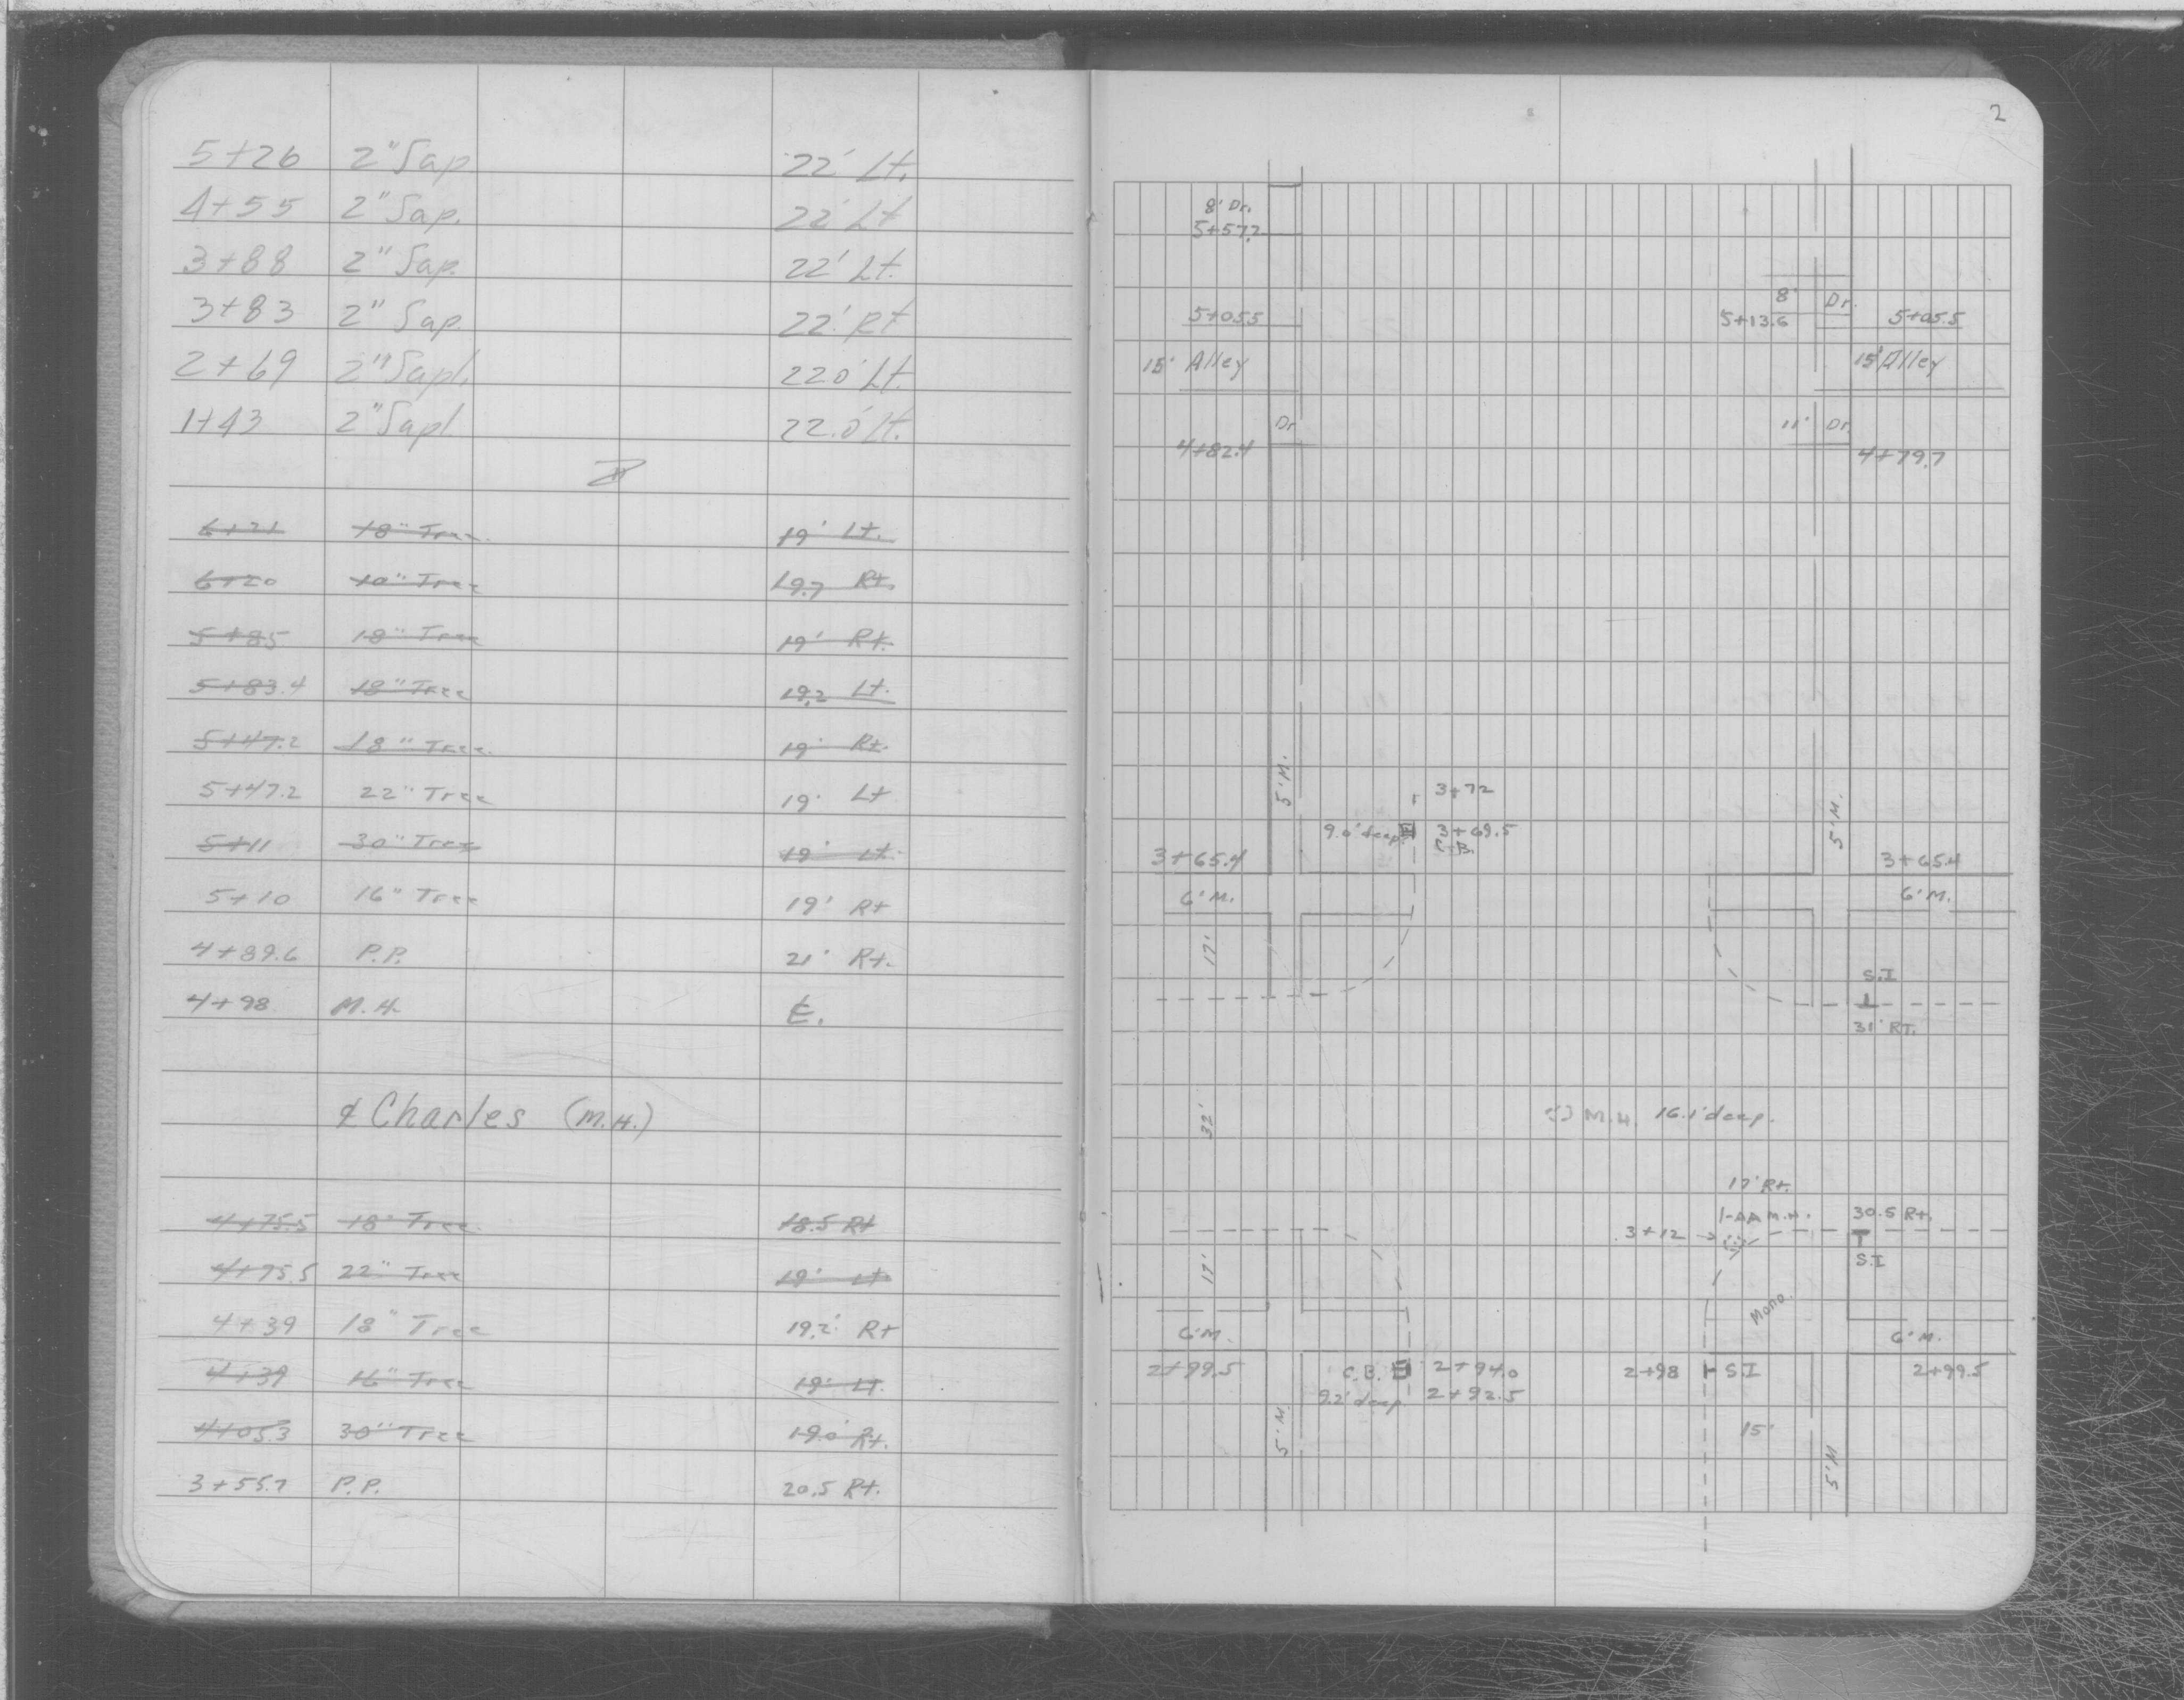 5+26 2" Sap 22' Lt.
4+55 2" Sap. 22' Lt
3+88 2" Sap. 22' Lt.
3+83 2" Sap. 22' Rt
2+69 2" Sapl. 22.0' Lt.
1+43 2" Sapl. 22.0' Lt.
6+21 18" Tree 19' Lt.
6+20 10" Tree 19.7 Rt.
5+85 18" Tree 19' Rt.
5+83.4 18" Tree 19.2 Lt.
5+47.2 18" Tree. 19' Rt.
5+47.2 22" Tree 19' Lt
5+11 30" Tree 19' Lt.
5+10 16" Tree 19' Rt
4+89.6 P.P. 21' Rt.
4+98 M.H. ℄.
℄ Charles (M.H.)
4+75.5 18" Tree 18.5 Rt
4+75.5 22" Tree 19' Lt
4+39 18" Tree 19.2' Rt
4+39 16" Tree 19' Lt.
4+05.3 30" Tree 19.0' Rt.
3+55.7 P.P. 20.5 Rt.
2
8' Dr.
5+57.2
8' Dr.
5+05.5 5+13.6 5+05.5
15' Alley 15' Alley
Dr 11' Dr
4+82.4 4+79.7
5' M. 5' M.
3+72
9.0' deep 3+69.5
C.B.
3+65.4 3+65.4
6' M. 6' M.
17'
S.I
31' RT.
32' M.H. 16.1' deep.
17' Rt.
1-AA M.H. 30.5 Rt.
3+12
S.I
17'
Mono.
6' M. 6' M.
2+99.5 C.B. 2+94.0 2+98 S.I 2+99.5
9.2' deep 2+92.5
5' M. 15' 5' M